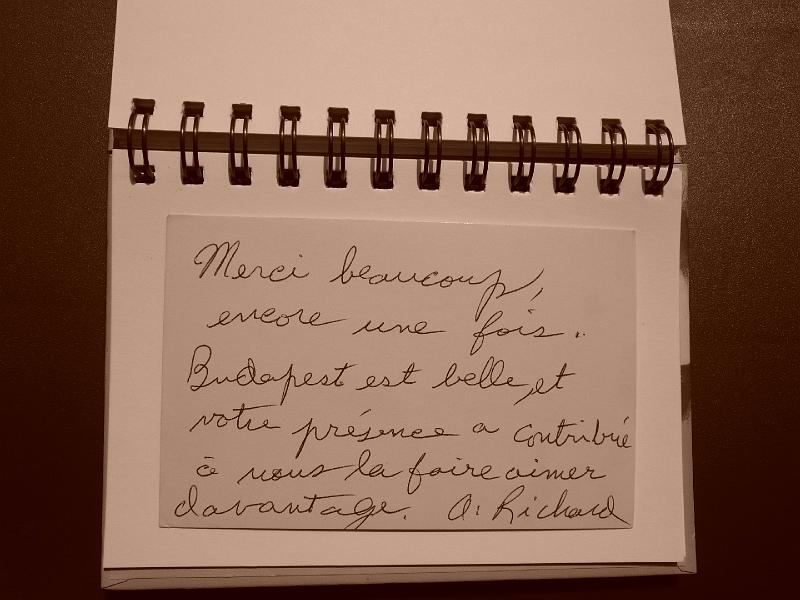 Merci beaucoup,
encore une fois.
Budapest est belle, et
votre présence a contribué
à nous la faire aimer
davantage. A. Richard